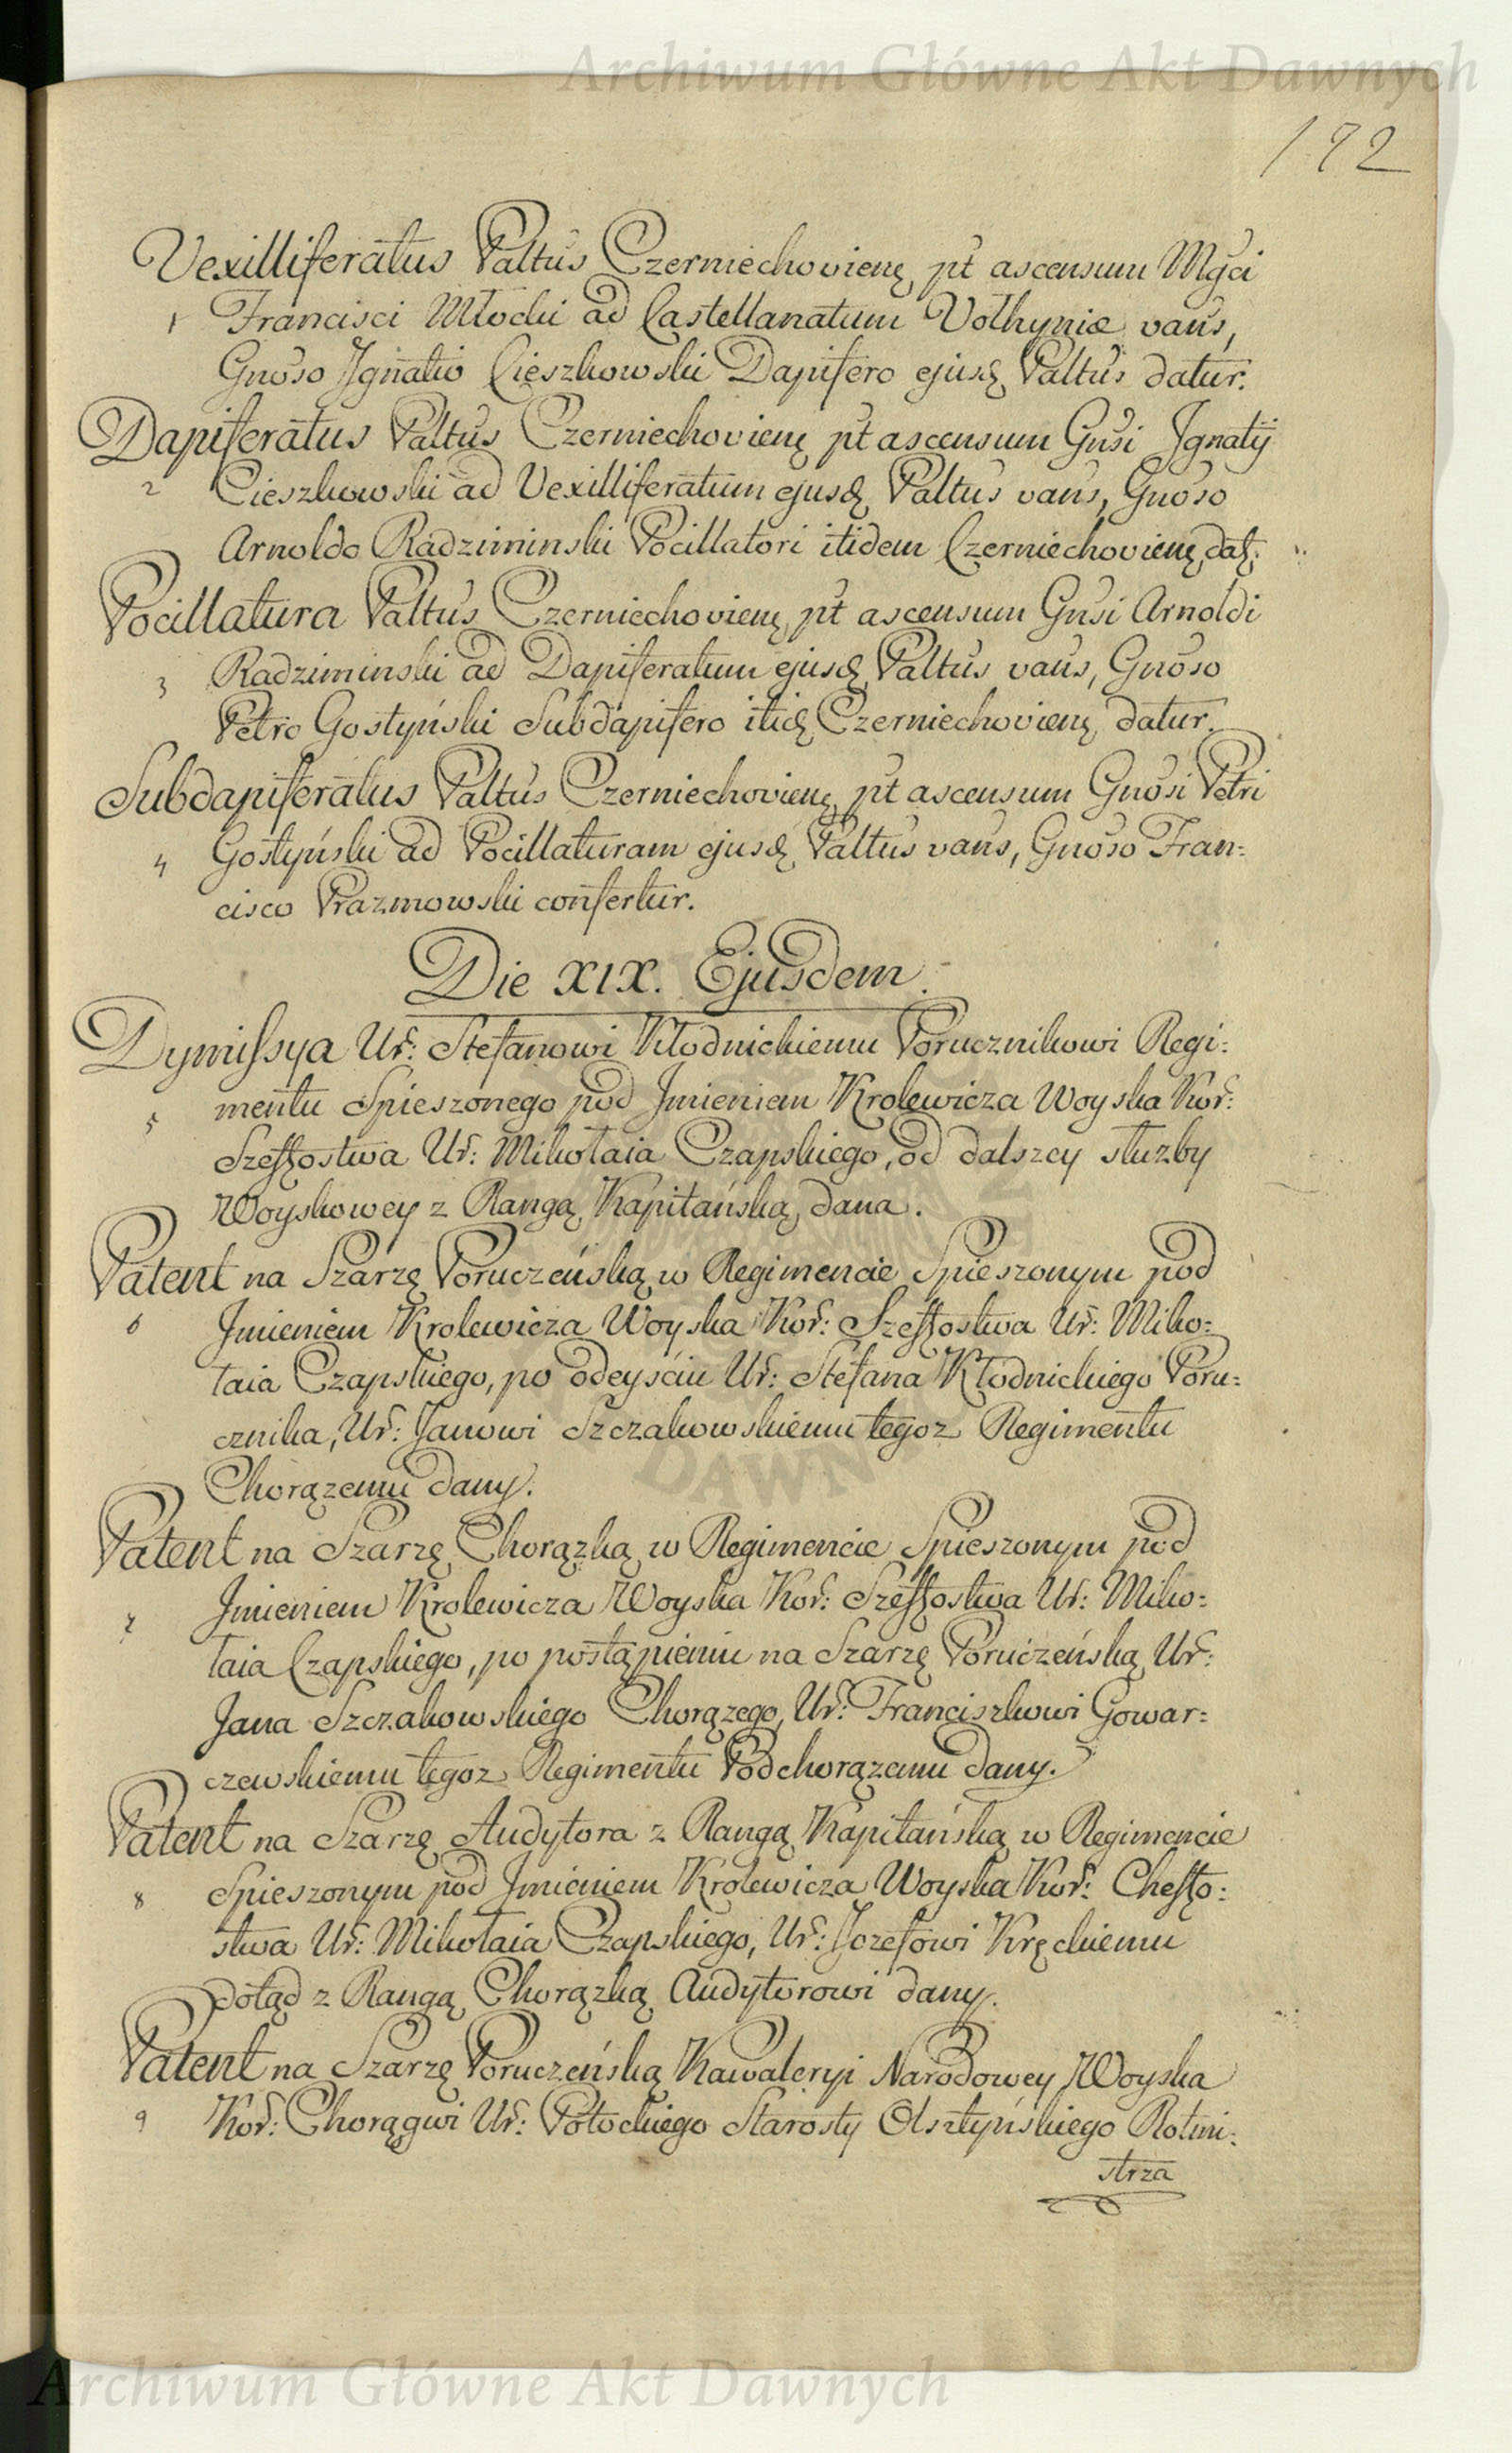 Archiwum Główne Akt Dawnych
192
Vexilliferatus Paltus Czerniechovienę pt ascensum Mgci
1 Francisci Młocki ad Castellanatum Volhyniæ vans,
Gnoso Jgnatio Cieszkowski Dapifero ejusd Paltus datur.
Dapiferatus Paltus Czerniechovienę pt ascensum Gnsi Jgnatij
2 Cieszkowski ad Vexilliferatum ejusd Paltus vans, Gnoso
Arnoldo Radziminski Pocillatori itidem Czerniechovienę dat.
Pocillatura Paltus Czerniechovienę pt ascensum Gnsi Arnoldi
3 Radziminski ad Dapiferatum ejusd Paltus vans, Gnoso
Petro Gostyński Subdapifero itid Czerniechovienę datur.
Subdapiferatus Paltus Czerniechovienę pt ascensum Gnosi Petri
4 Gostyński ad Pocillaturam ejusd Paltus vans, Gnoso Fran:
cisco Prazmowski confertur.
Die XIX. Ejusdem.
Dymissya Ur: Stefanowi Kłodnickiemu Porucznikowi Regi:
5 mentu Spieszonego pod Jmieniem Krolewicza Woyska Kor:
Szeffostwa Ur: Mikołaia Czapskiego, od dalszey słuzby
Woyskowey z Rangą Kapitańską dana.
Patent na Szarzę Poruczeńską w Regimencie Spieszonym pod
6 Jmieniem Krolewicza Woyska Kor: Szeffostwa Ur: Miko:
łaia Czapskiego, po odeysciu Ur: Stefana Kłodnickiego Poru:
cznika, Ur: Janowi Szczakowskiemu tegoz Regimentu
Chorązemu dany.
Patent na Szarzę Chorązką w Regimencie Spieszonym pod
7 Jmieniem Krolewicza Woyska Kor: Szeffostwa Ur: Miko:
łaia Czapskiego, po postąpieniu na Szarzę Poruczeńską Ur:
Jana Szczakowskiego Chorązego, Ur: Franciszkowi Gowar:
czewskiemu tegoz Regimentu Podchorązemu dany.
Patent na Szarzę Audytora z Rangą Kapitańską w Regimencie
8 Spieszonym pod Jmieniem Krolewicza Woyska Kor: Cheffo:
stwa Ur: Mikołaia Czapskiego, Ur: Jozefowi Kręckiemu
dotąd z Rangą Chorązką Audytorowi dany.
Patent na Szarzę Poruczeńską Kawaleryi Narodowey Woyska
9 Kor: Chorągwi Ur: Potockiego Starosty Olsztyńskiego Rotmi:
strza
Archiwum Główne Akt Dawnych